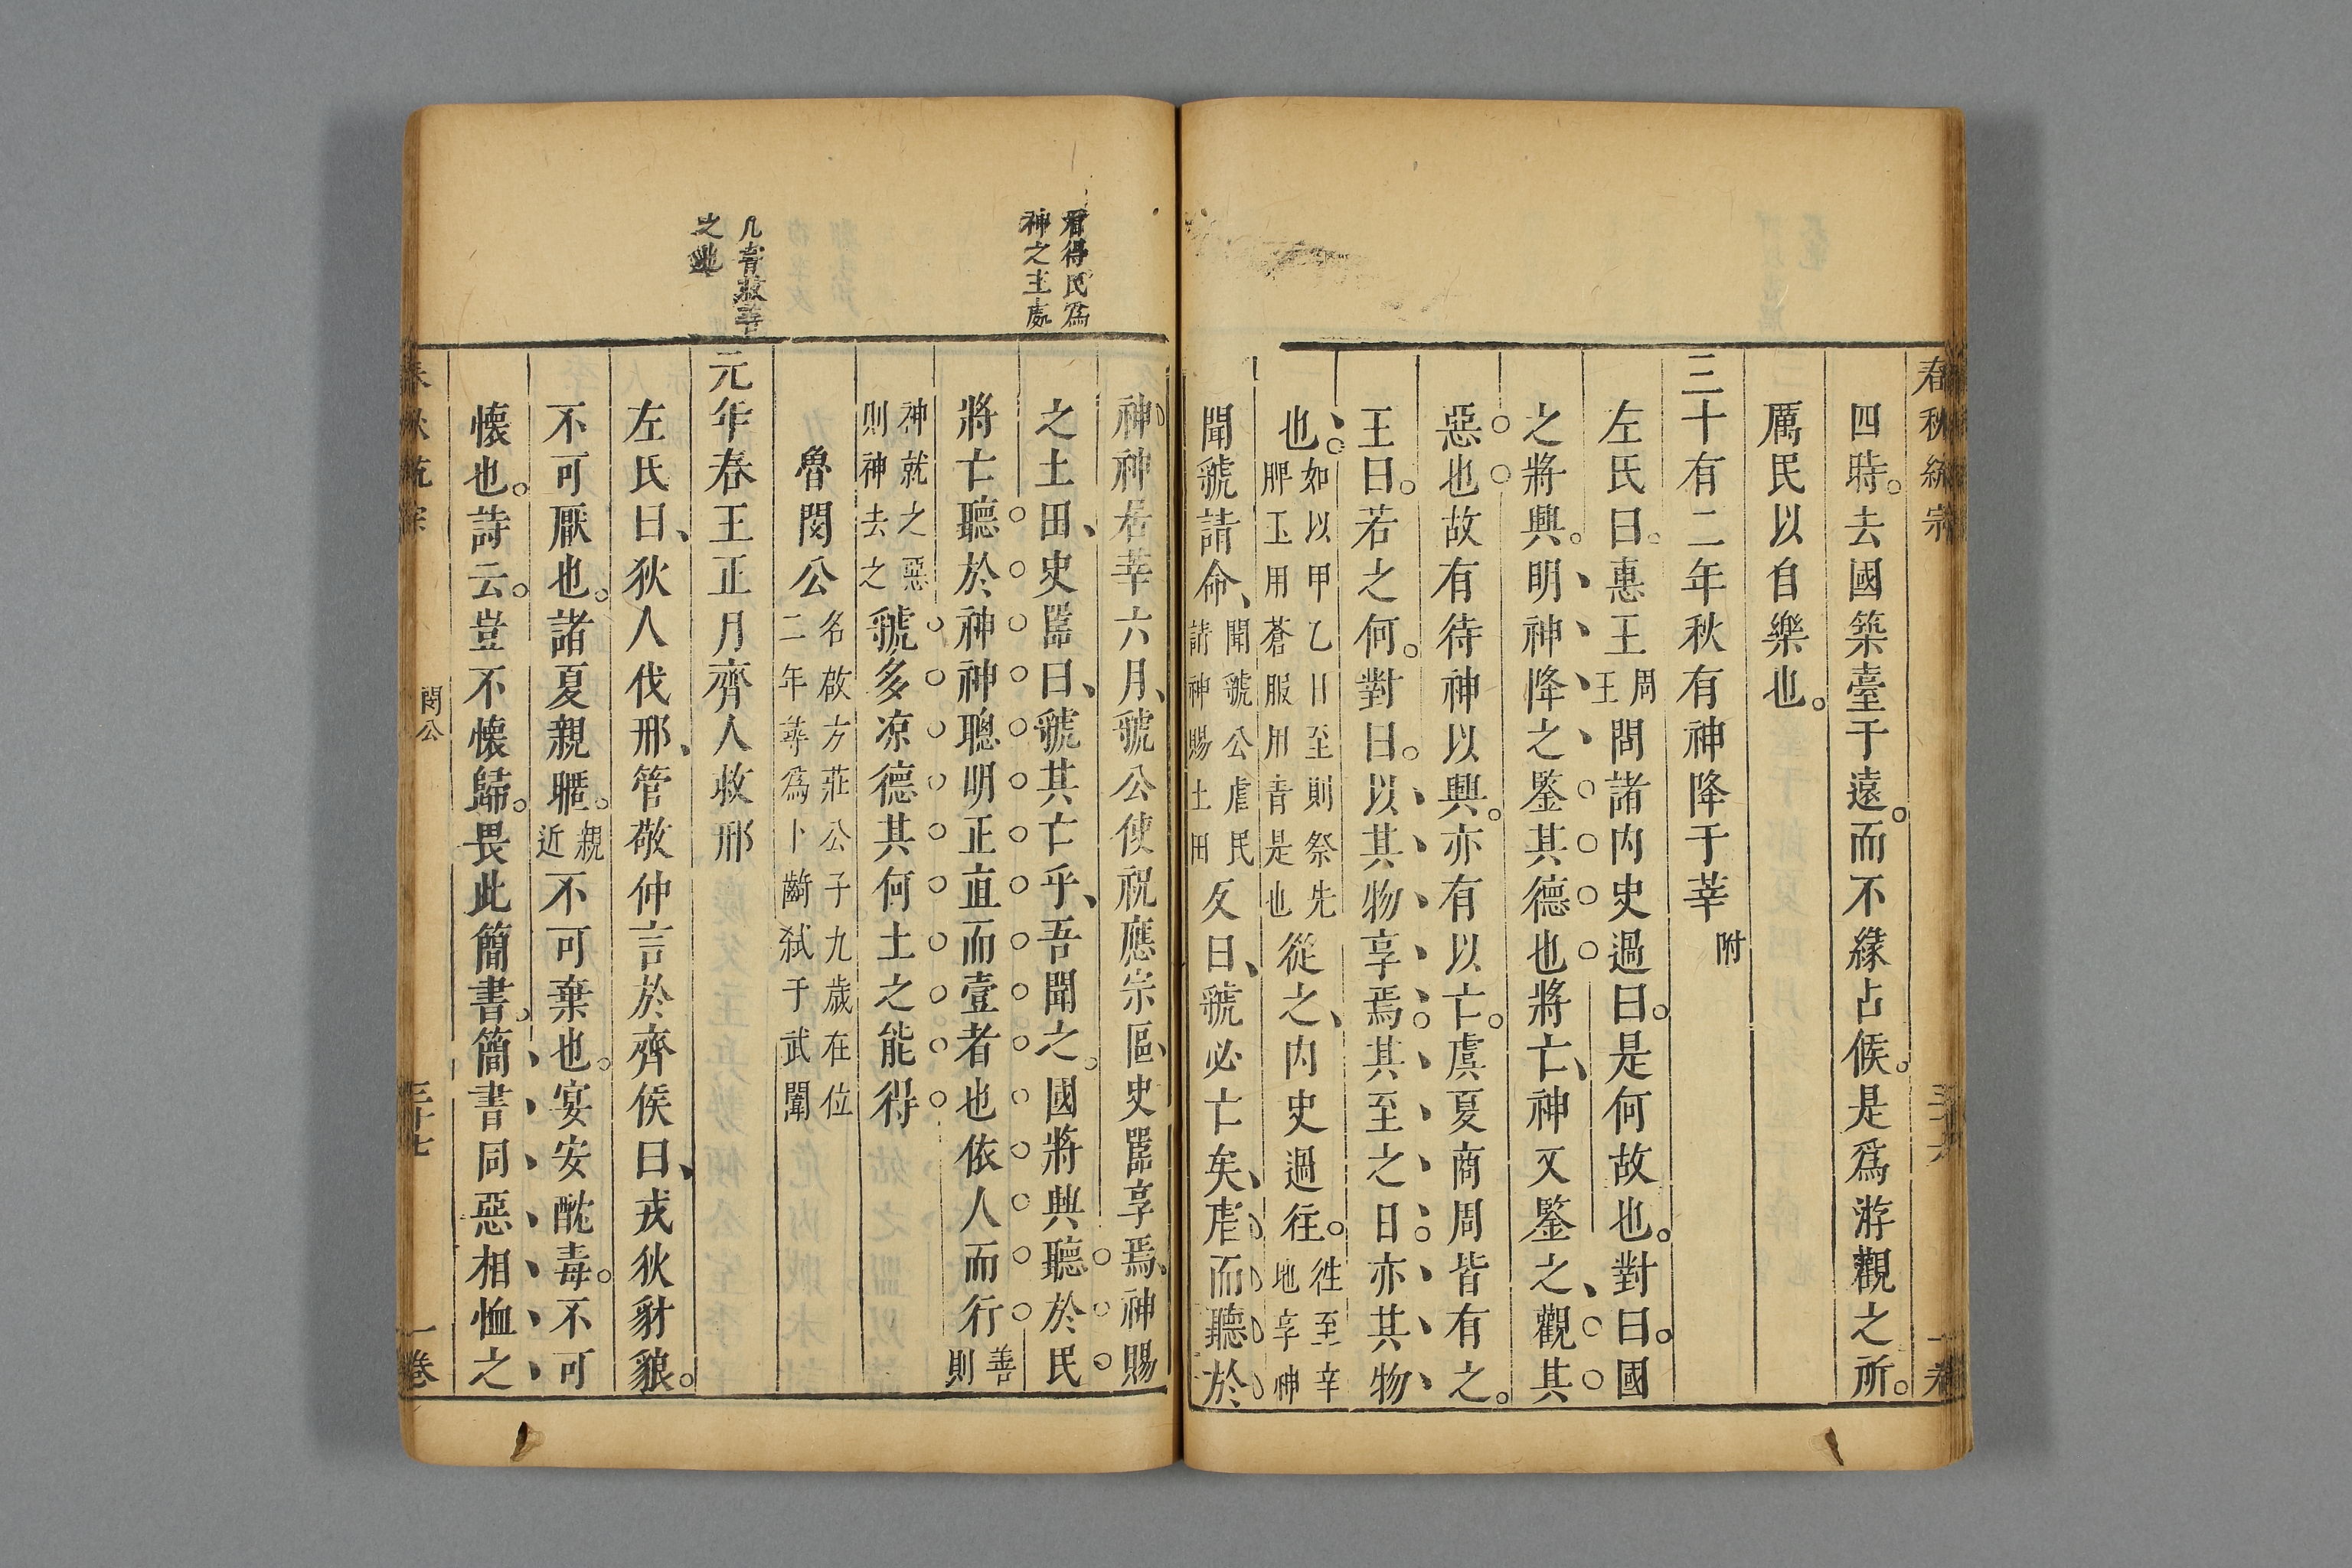 春秋統宗
一卷
四時。去國築臺于遠。而不緣占候。是爲游觀之所。
厲民以自樂也。
三十有二年秋有神降于莘 附
左氏曰。惠王 周王 問諸内史過曰。是何故也。對曰。國
之將興。明神降之鑒其德也將亡、神又鑒之、觀其
惡也故有待神以興。亦有以亡。虞夏商周皆有之。
王曰。若之何。對曰。以其物享焉其至之日亦其物
也。 如以甲乙日至則祭先脾玉用蒼服用青是也 從之、内史過往。 徃至莘地享神
聞虢請命、 聞虢公虐民請神賜土田 反曰、虢必亡矣、虐而聽於
看得民爲
神之主處
神神居莘六月、虢公使祝應宗區史嚚享焉、神賜
之土田、史嚚曰、虢其亡乎、吾聞之。國將興聽於民
將亡聽於神神聰明正直而壹者也依人而行 善則
神就之惡則神去之 虢多凉德其何土之能得
魯閔公 名啟方莊公子九歲在位二年葬爲卜齮弑于武闈
之
元年春王正月齊人救邢
左氏曰、狄人伐邢、管敬仲言於齊侯曰、戎狄豺狼。
不可厭也。諸夏親暱。 親近 不可棄也。宴安酖毒。不可
懷也。詩云。豈不懷歸。畏此簡書。簡書同惡相恤之
春秋統宗
閔公
三十七
一卷